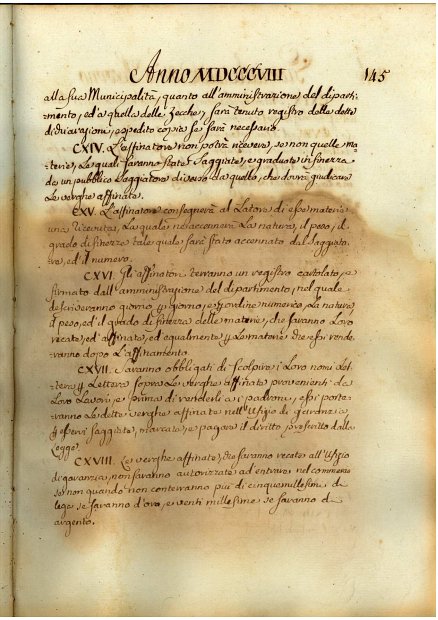 Anno MDCCCVIII 145
alla sua Municipalità, quanto all'amministrazione del diparti-
mento, ed a quella delle Zecche, sarà tenuto registro delle dette
dichiarazioni, e spedito copia se sarà necessario.
CXIV. L'affinatore non potrà ricevere, se non quelle ma-
terie, le quali saranno state saggiate, e graduate in finezza
da un pubblico saggiatore diverso da quello, che dovrà giudicare
le verghe affinate.
CXV. L'affinatore consegnerà al latore di esse materie
una ricevuta, la quale ne accennerà la natura, il peso, il
grado di finezza tale quale sarà stato accennato dal saggiato-
re, ed il numero.
CXVI. Gli affinatori terranno un registro cartolato, e
firmato dall'amministrazione del dipartimento, nel quale
descriveranno giorno p giorno, e p ordine numerico, la natura
il peso, ed il grado di finezza delle materie, che saranno loro
recate, ed affinate, ed egualmente p le materie che essi rende-
ranno dopo l'affinamento.
CXVII. Saranno obbligati di scolpire i loro nomi let-
tera p lettera sopra le verghe affinate provenienti da
loro lavori, e prima di renderle a i padroni, essi porte-
ranno le dette verghe affinate nell'Ufizio di garanzia
p esservi saggiate, marcate, e pagare il diritto prescritto dalla
Legge.
CXVIII. Le verghe affinate, che saranno recate all'Ufizio
di garanzia, non saranno autorizzate ad entrare nel commercio
se non quando non conterranno più di cinque millesimi di
lega se saranno d'oro, e venti millesimi se saranno di
argento.